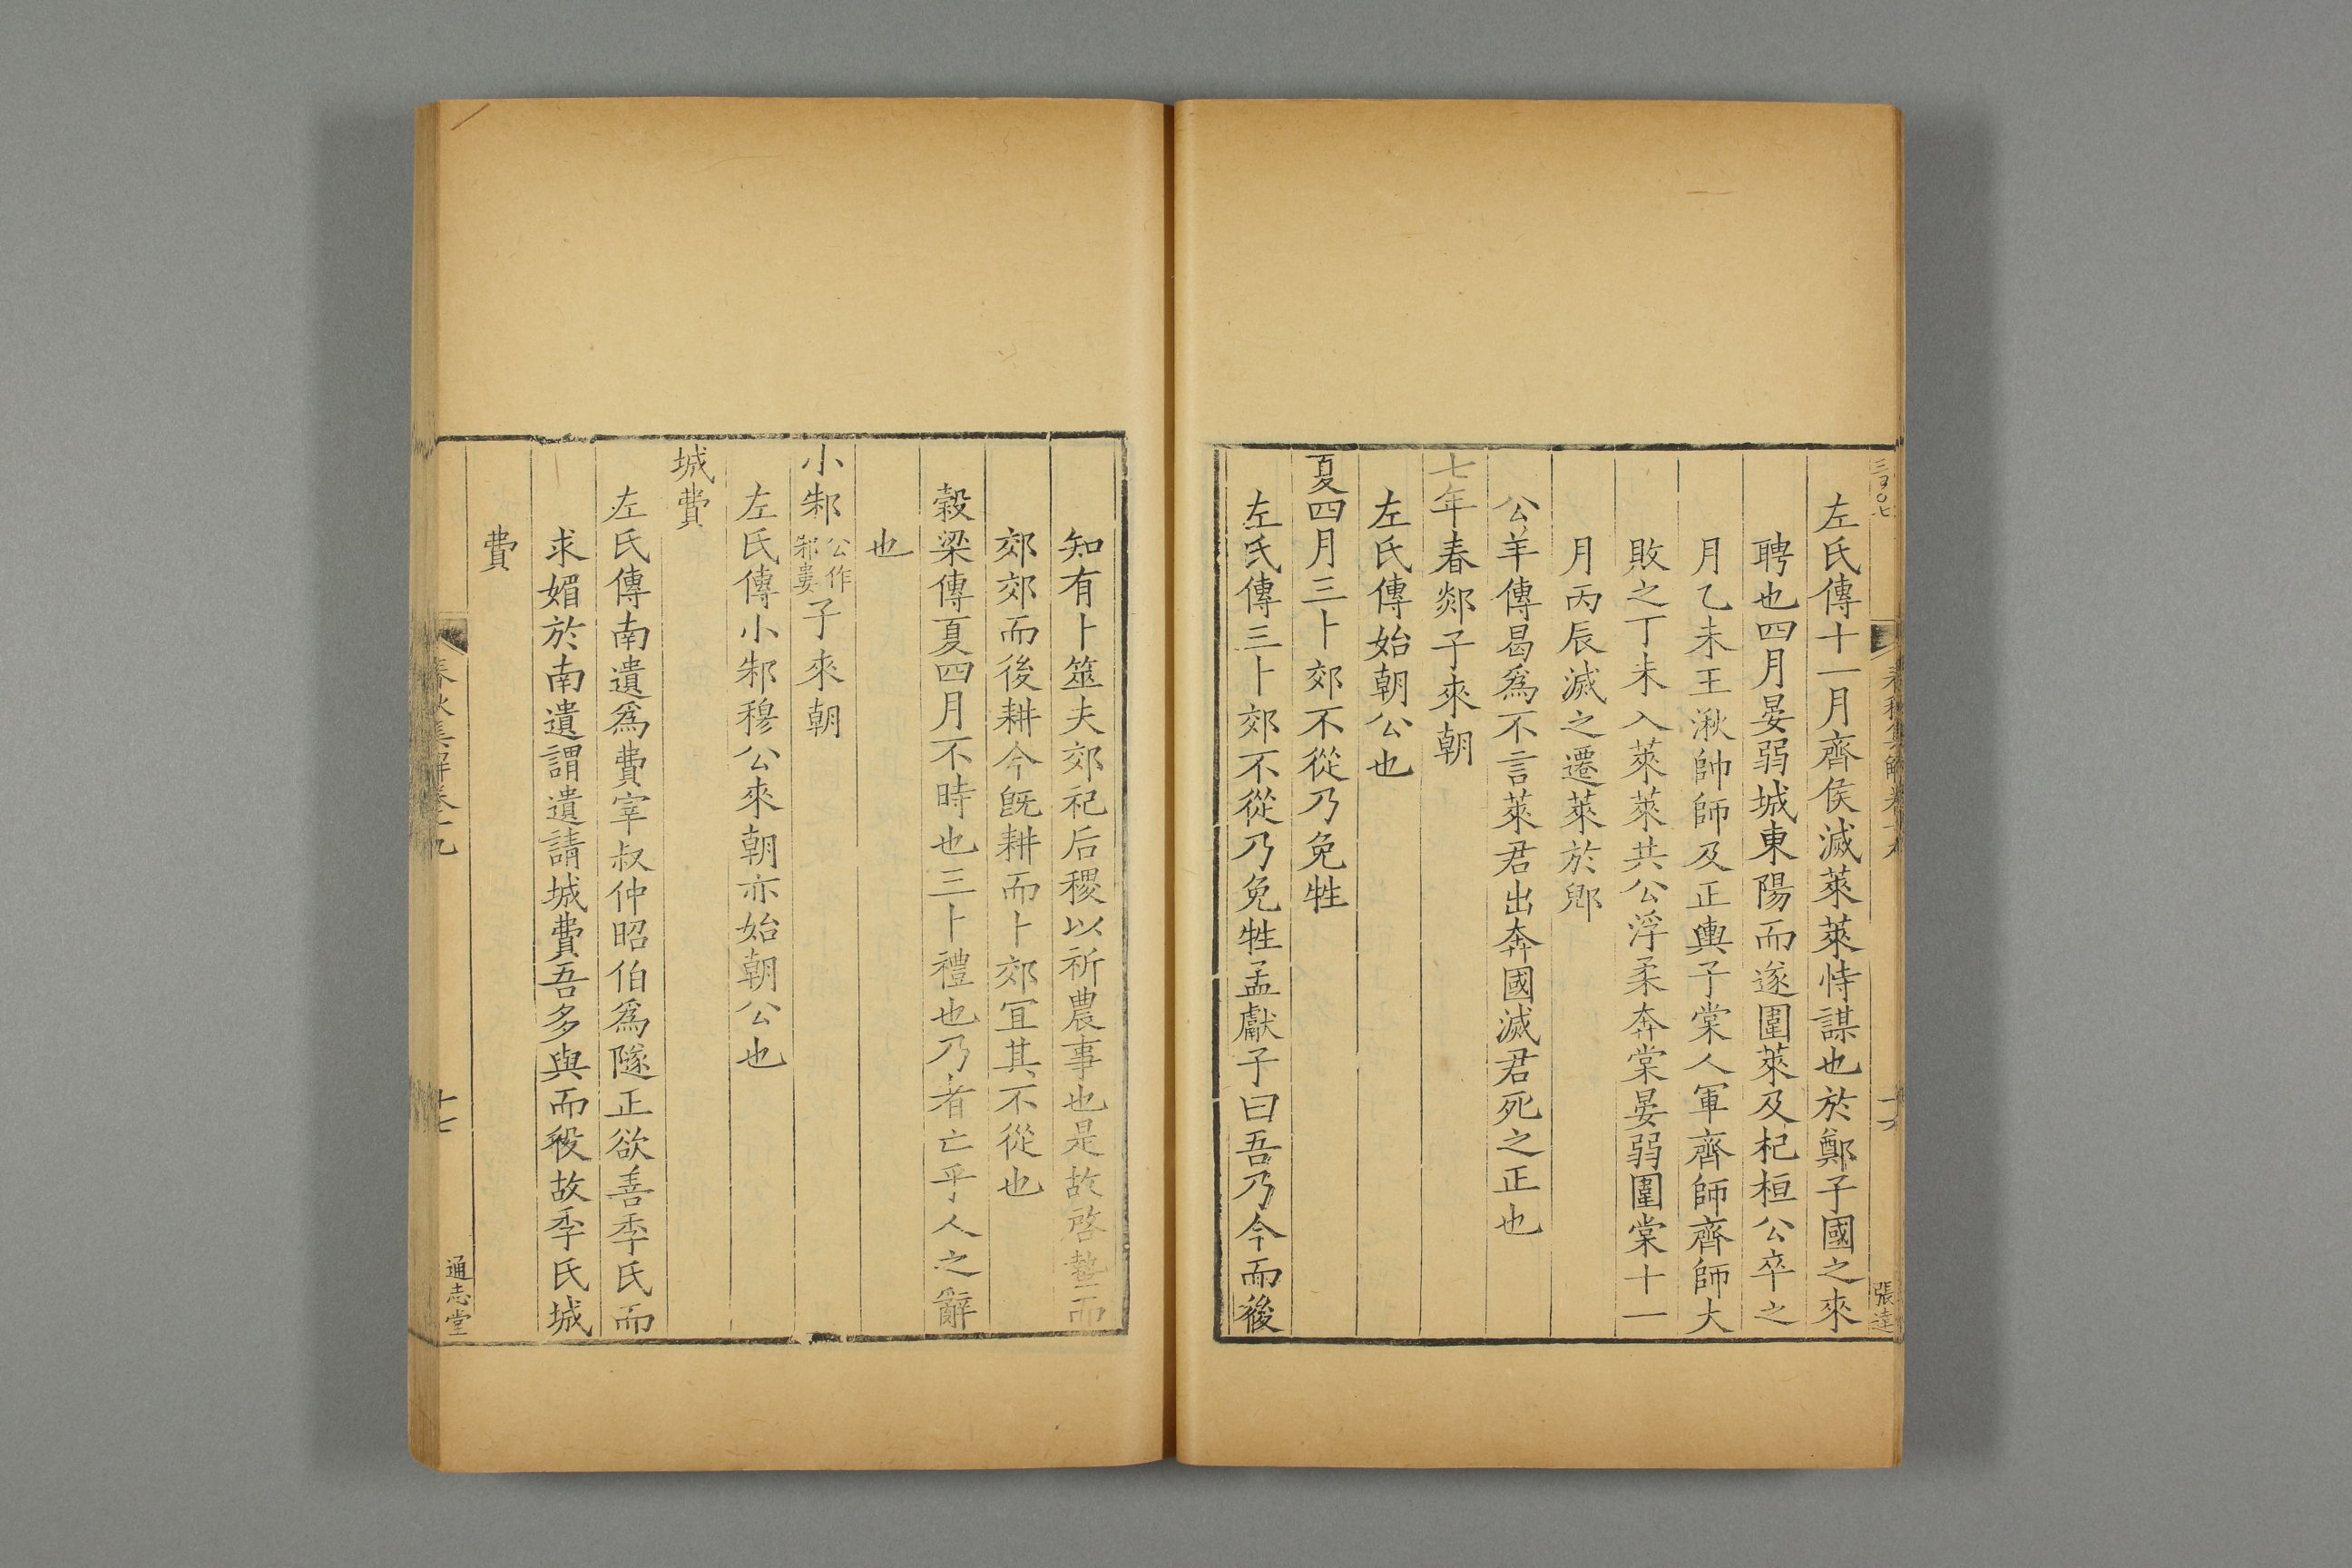 三百〇七
春秋集解卷十九
十六
張達
左氏傳十一月齊侯滅萊萊恃謀也於鄭子國之來
聘也四月晏弱城東陽而遂圍萊及杞桓公卒之
月乙未王湫帥師及正輿子棠人軍齊師齊師大
敗之丁未入萊萊共公浮柔奔棠晏弱圍棠十一
月丙辰滅之遷萊於郳
公羊傳曷爲不言萊君出奔國滅君死之正也
七年春郯子來朝
左氏傳始朝公也
夏四月三卜郊不從乃免牲
左氏傳三卜郊不從乃免牲孟獻子曰吾乃今而後
知有卜筮夫郊祀后稷以祈農事也是故啓蟄而
郊郊而後耕今旣耕而卜郊宜其不從也
穀梁傳夏四月不時也三卜禮也乃者亡乎人之辭
也
小邾公作邾婁子來朝
左氏傳小邾穆公來朝亦始朝公也
城費
左氏傳南遺爲費宰叔仲昭伯爲隧正欲善季氏而
求媚於南遺謂遺請城費吾多與而役故季氏城
費
春秋集解卷十九
十七
通志堂